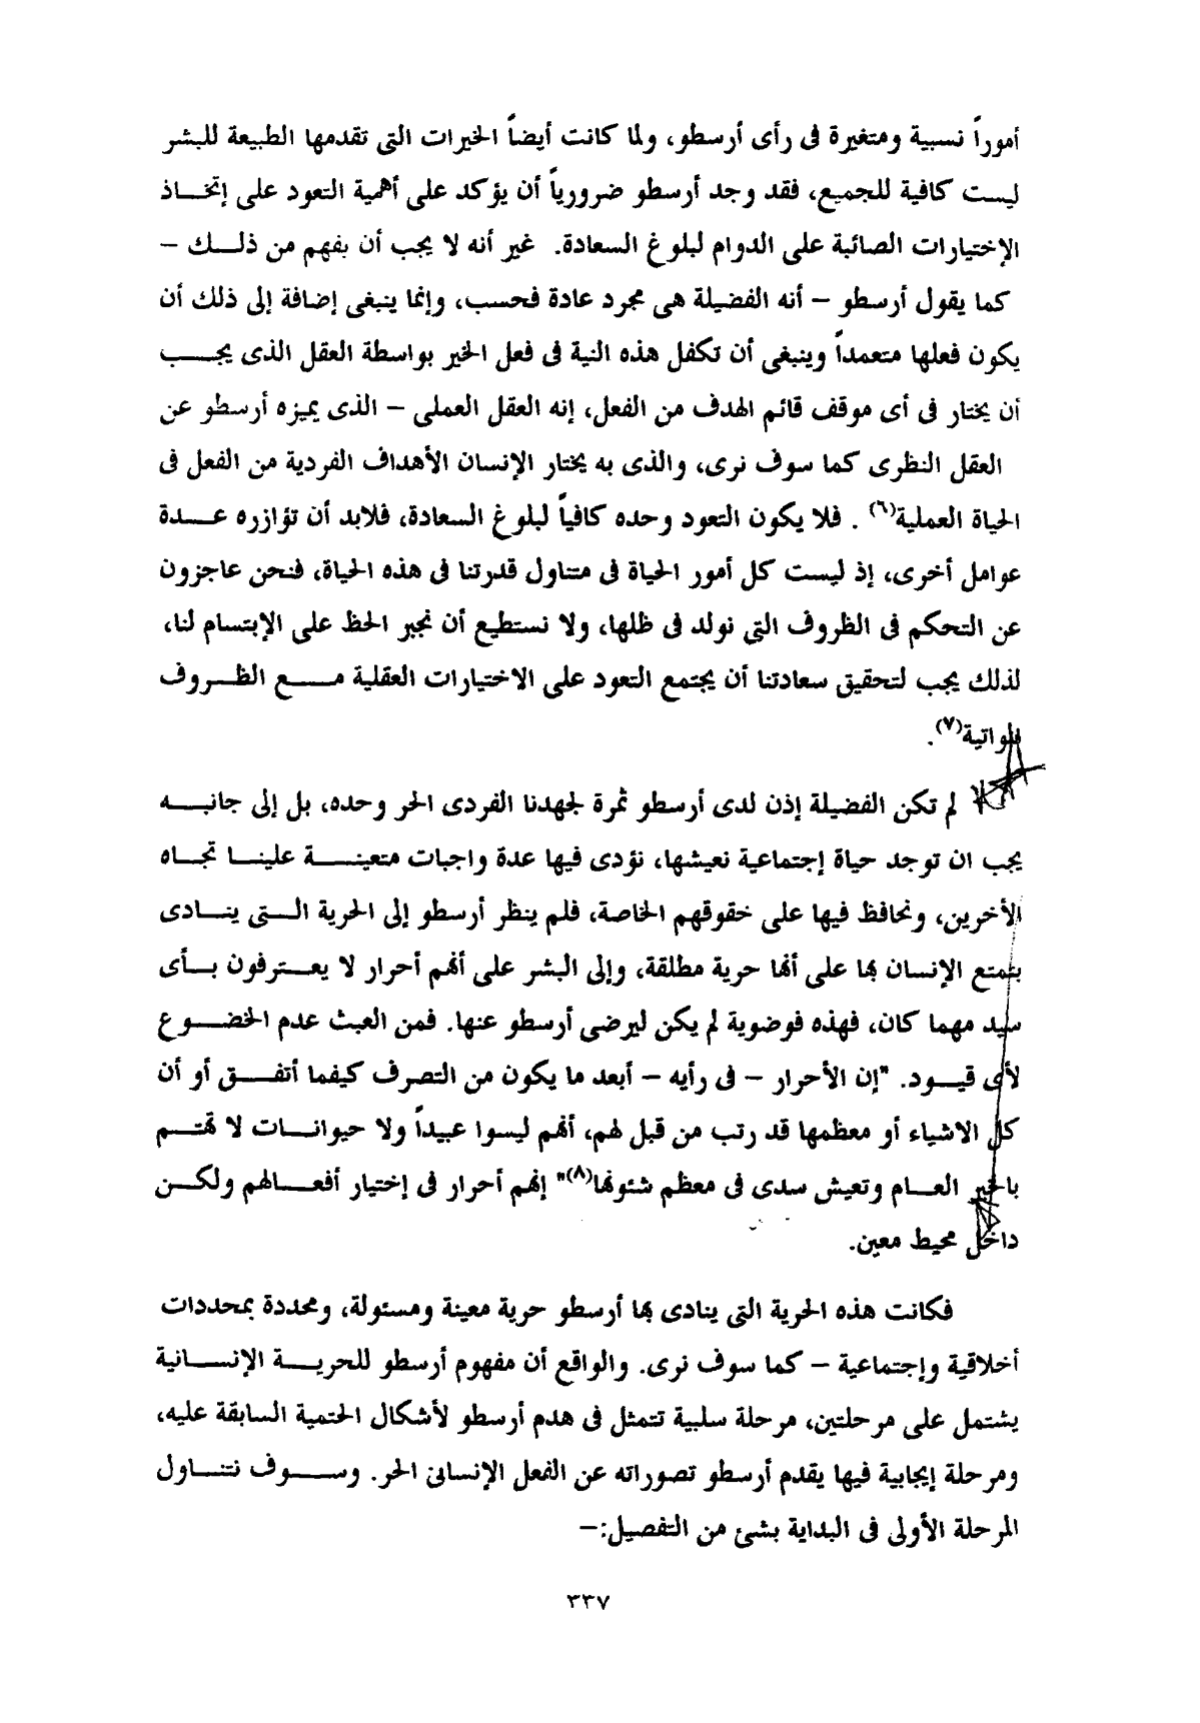 أموراً نسبية ومتغيرة فى رأى أرسطو، ولما كانت أيضاً الخيرات التى تقدمها الطبيعة للبشر
ليست كافية للجميع، فقد وجد أرسطو ضرورياً أن يؤكد على أهمية التعود على إتخاذ
الإختيارات الصائبة على الدوام لبلوغ السعادة. غير أنه لا يجب أن يفهم من ذلك –
كما يقول أرسطو – أنه الفضيلة هى مجرد عادة فحسب، وإنما ينبغى إضافة إلى ذلك أن
يكون فعلها متعمداً وينبغى أن تكفل هذه النية فى فعل الخير بواسطة العقل الذى يجب
أن يختار فى أى موقف قائم الهدف من الفعل، إنه العقل العملى – الذى يميزه أرسطو عن
العقل النظرى كما سوف نرى، والذى به يختار الإنسان الأهداف الفردية من الفعل فى
الحياة العملية(٦) . فلا يكون التعود وحده كافياً لبلوغ السعادة، فلابد أن تؤازره عدة
عوامل أخرى، إذ ليست كل أمور الحياة فى متناول قدرتنا فى هذه الحياة، فنحن عاجزون
عن التحكم فى الظروف التى نولد فى ظلها، ولا نستطيع أن نجبر الحظ على الإبتسام لنا،
لذلك يجب لتحقيق سعادتنا أن يجتمع التعود على الاختيارات العقلية مع الظروف
المواتية(٧).
لم تكن الفضيلة إذن لدى أرسطو ثمرة لجهدنا الفردى الحر وحده، بل إلى جانبه
يجب ان توجد حياة إجتماعية نعيشها، نؤدى فيها عدة واجبات متعينة علينا تجاه
الأخرين، ونحافظ فيها على حقوقهم الخاصة، فلم ينظر أرسطو إلى الحرية التى ينادى
بتمتع الإنسان بها على أنها حرية مطلقة، وإلى البشر على أنهم أحرار لا يعترفون بأى
سيد مهما كان، فهذه فوضوية لم يكن ليرضى أرسطو عنها. فمن العبث عدم الخضوع
لأى قيود. "إن الأحرار – فى رأيه – أبعد ما يكون من التصرف كيفما أتفق أو أن
كل الاشياء أو معظمها قد رتب من قبل لهم، أنهم ليسوا عبيداً ولا حيوانات لا تهتم
بالخير العام وتعيش سدى فى معظم شئونها(٨)" إنهم أحرار فى إختيار أفعالهم ولكن
داخل محيط معين.
فكانت هذه الحرية التى ينادى بها أرسطو حرية معينة ومسئولة، ومحددة بمحددات
أخلاقية وإجتماعية – كما سوف نرى. والواقع أن مفهوم أرسطو للحرية الإنسانية
يشتمل على مرحلتين، مرحلة سلبية تتمثل فى هدم أرسطو لأشكال الحتمية السابقة عليه،
ومرحلة إيجابية فيها يقدم أرسطو تصوراته عن الفعل الإنسانى الحر. وسوف نتناول
المرحلة الأولى فى البداية بشئ من التفصيل:–
٣٣٧